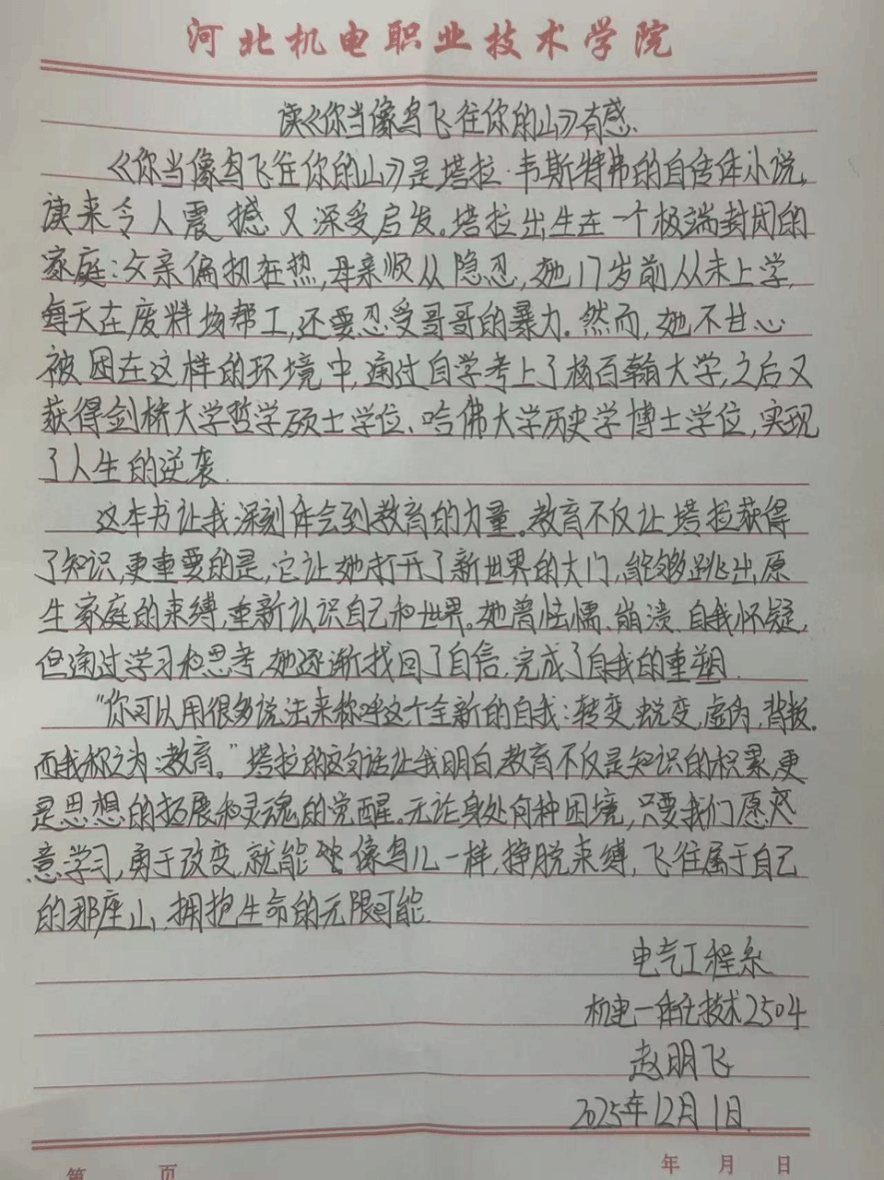 河北机电职业技术学院
读《你当像鸟飞往你的山》有感.
《你当像鸟飞往你的山》是塔拉·韦斯特弗的自传体小说,
读来令人震撼又深受启发。塔拉出生在一个极端封闭的
家庭:父亲偏执狂热,母亲顺从隐忍,她17岁前从未上学,
每天在废料场帮工,还要忍受哥哥的暴力。然而,她不甘心
被困在这样的环境中,通过自学考上了杨百翰大学,之后又
获得剑桥大学哲学硕士学位、哈佛大学历史学博士学位,实现
了人生的逆袭.
这本书让我深刻体会到教育的力量。教育不仅让塔拉获得
了知识,更重要的是,它让她打开了新世界的大门,能够跳出原
生家庭的束缚,重新认识自己和世界。她曾怯懦、崩溃、自我怀疑,
但通过学习和思考,她逐渐找回了自信,完成了自我的重塑.
“你可以用很多说法来称呼这个全新的自我:转变,蜕变,虚伪,背叛.
而我称之为:教育。”塔拉的这句话让我明白,教育不仅是知识的积累,更
是思想的拓展和灵魂的觉醒。无论身处何种困境,只要我们愿
意学习,勇于改变,就能像鸟儿一样,挣脱束缚,飞往属于自己
的那座山,拥抱生命的无限可能.
电气工程系
机电一体化技术2504
赵明飞
2025年12月1日.
第 页 年 月 日